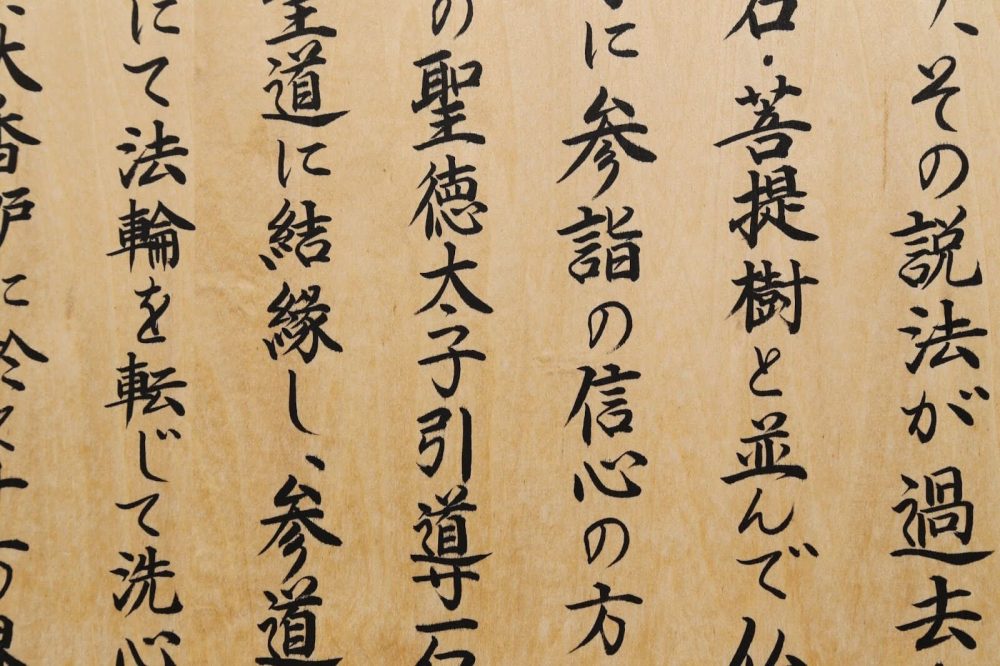 、その説法が過去
石・菩提樹と並んで仏
に参詣の信心の方
の聖徳太子引導石
道に結縁し、参道
にて法輪を転じて洗心
大香炉に